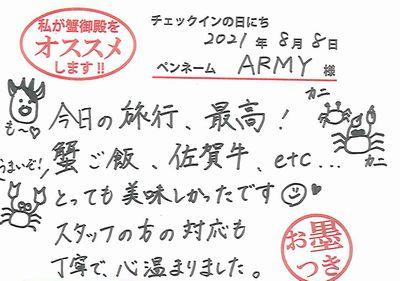 私が蟹御殿を
オススメ
します!!
チェックインの日にち
2021年8月8日
ペンネーム ARMY 様
も〜♡
今日の旅行、最高!
カニ
うまいぞ!
蟹ご飯、佐賀牛、etc...
カニ
とっても美味しかったです
スタッフの方の対応も
丁寧で、心温まりました。
お墨
つき